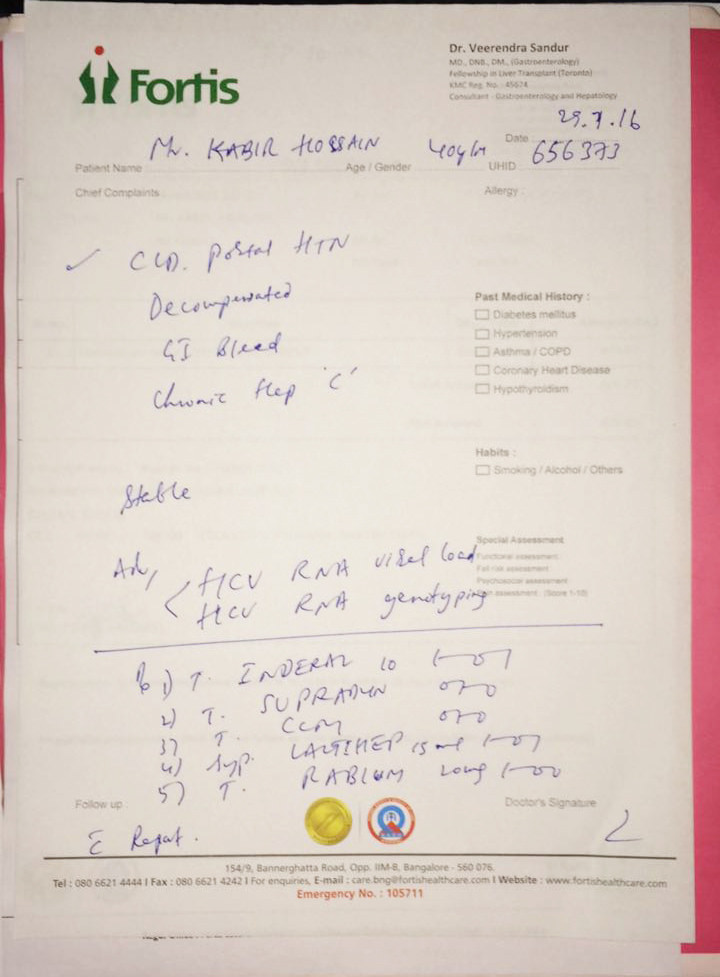 Fortis
Dr. Veerendra Sandur
MD., DNB., DM., (Gastroenterology)
Fellowship in Liver Transplant (Toronto)
KMC Reg. No. - 45674
Consultant - Gastroenterology and Hepatology
Date 29.7.16
Patient Name Mr. KABIR HOSSAIN Age / Gender 40y/M UHID 656373
Chief Complaints : Allergy :
✓ CLD. Portal HTN
Decompensated
GI Bleed
Chronic Hep 'C'
Past Medical History :
Diabetes mellitus
Hypertension
Asthma / COPD
Coronary Heart Disease
Hypothyroidism
Habits :
Smoking / Alcohol / Others
Stable
Special Assessment
Functional assessment
Fall risk assessment
Psychosocial assessment
assessment (Score 1-10)
Adv,
HCV RNA viral load
HCV RNA genotyping
1) T. INDERAL 10 1-0-1
2) T. SUPRADYN 0-1-0
3) T. CCM 0-1-0
4) Syp. LACTIHEP 15 ml 1-0-1
5) T. RABIUM 20mg 1-0-0
Follow up : Doctor's Signature
c Report.
154/9, Bannerghatta Road, Opp. IIM-B, Bangalore - 560 076.
Tel : 080 6621 4444 I Fax : 080 6621 4242 I For enquiries, E-mail : care.bng@fortishealthcare.com I Website : www.fortishealthcare.com
Emergency No. : 105711